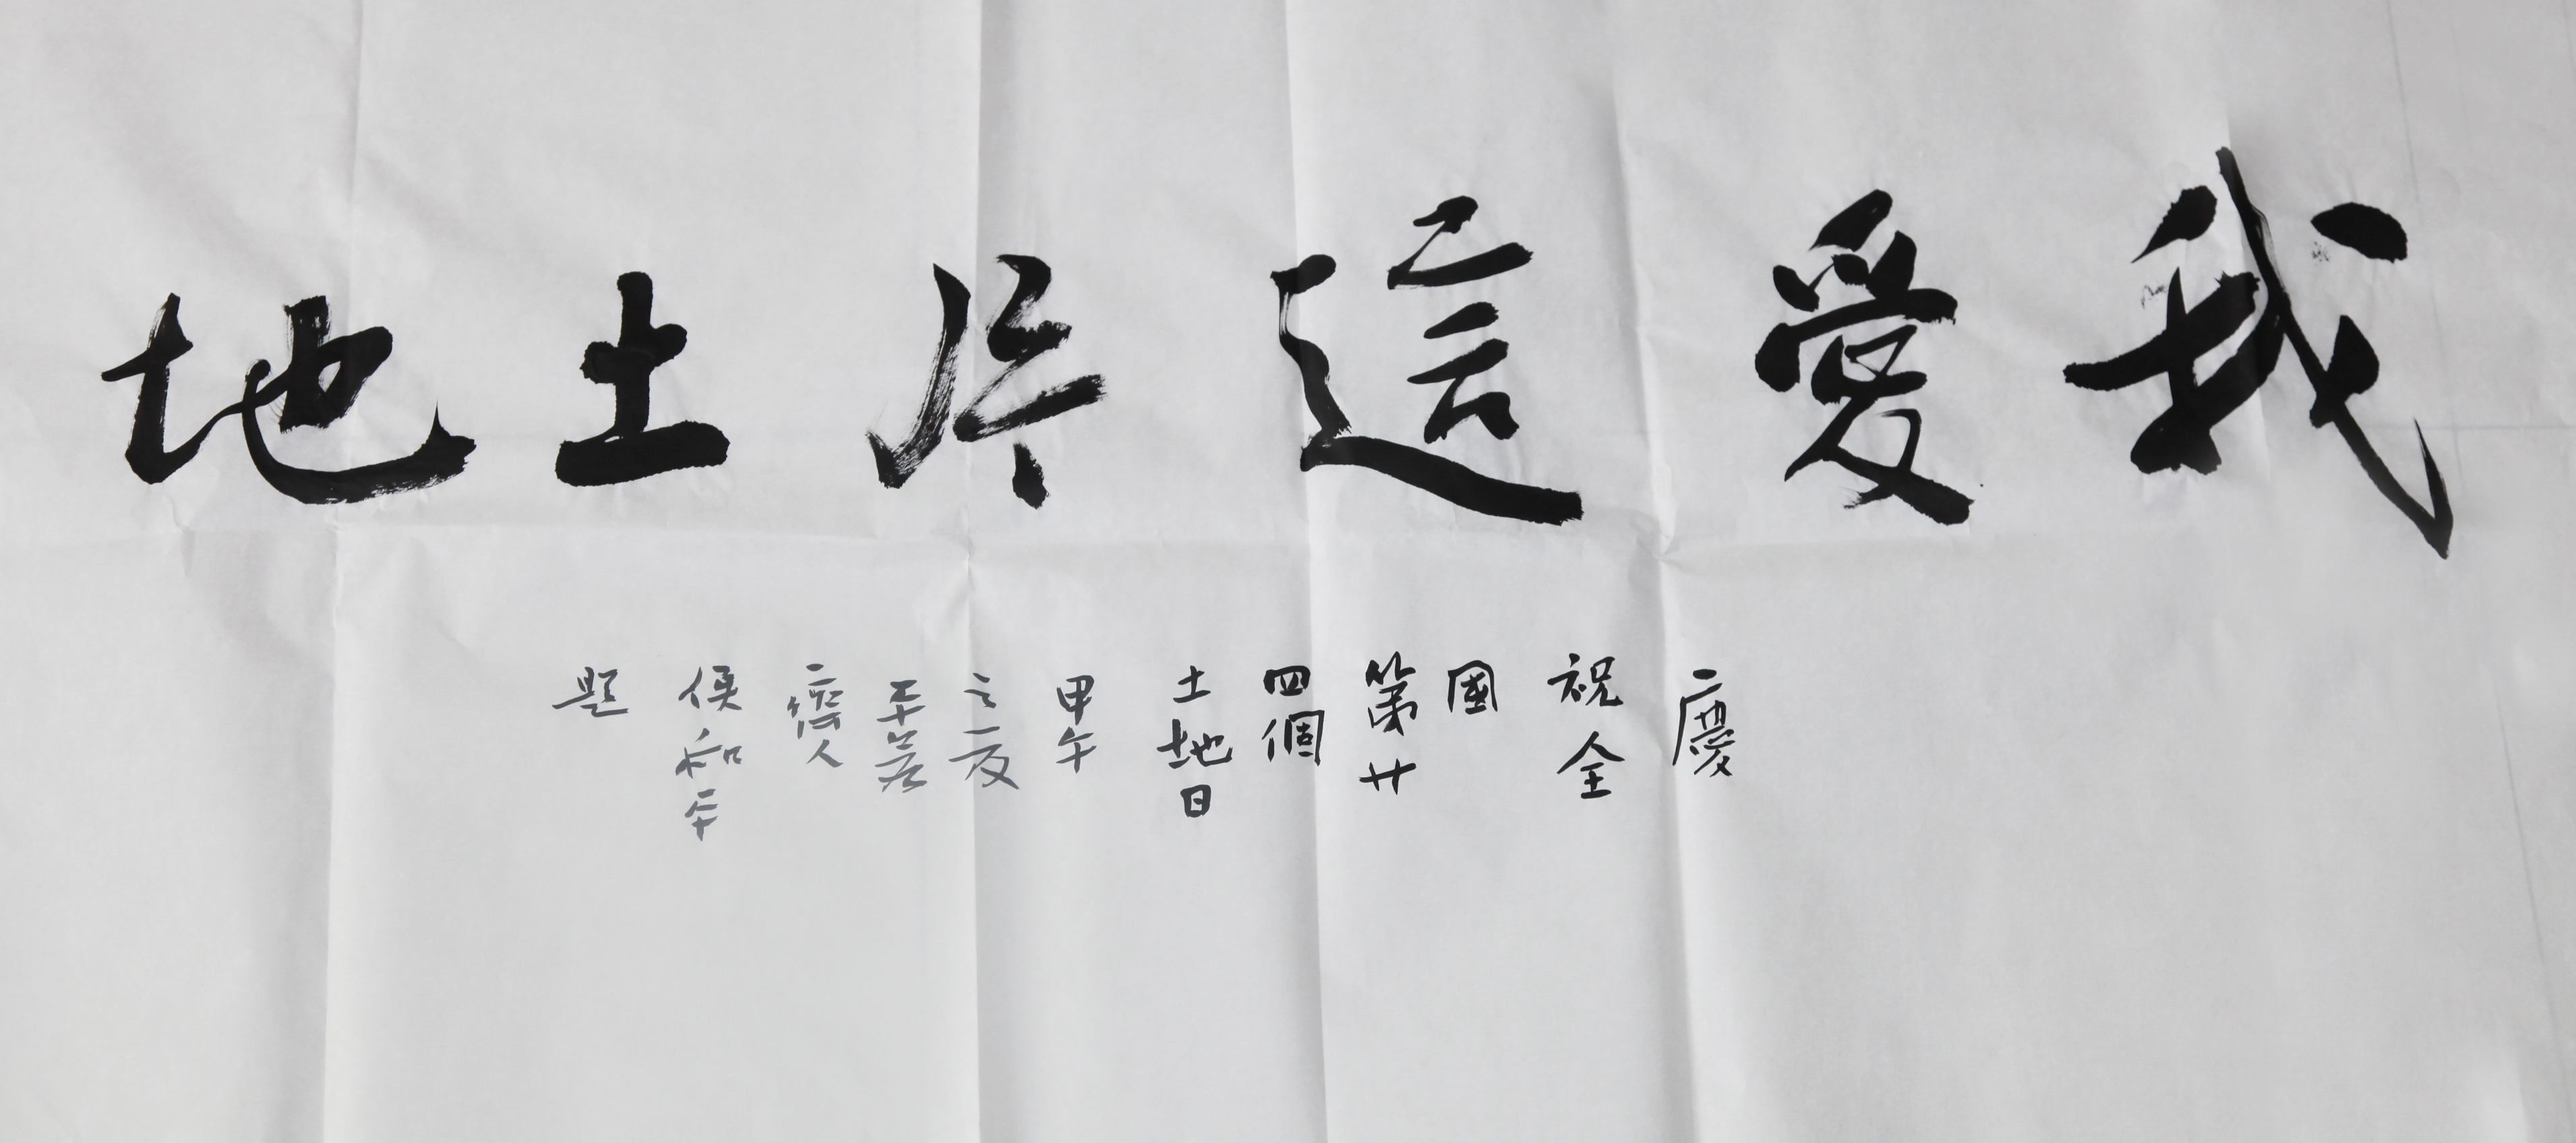 我愛這片土地
慶
祝全
國
第廿
四個
土地日
甲午
之夏
平若
齊人
侯和平
題